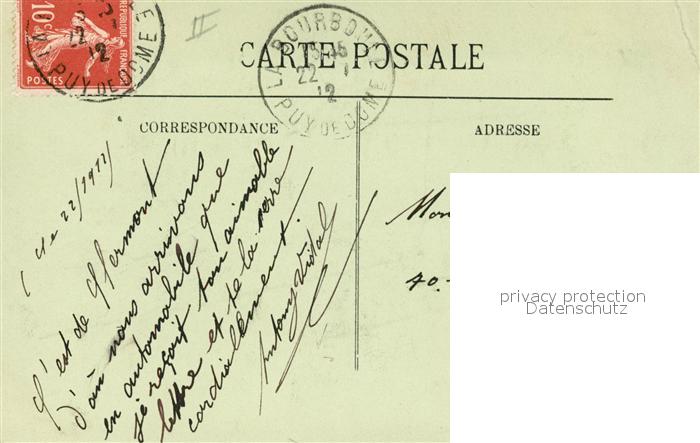 10c
REPUBLIQUE FRANCAISE
POSTES
LA BOURBOULE
22 - 1
12
PUY DE DOME
II
CARTE POSTALE
LA BOURBOULE
22 - 1
12
PUY DE DOME
CORRESPONDANCE
ADRESSE
22/1912)
C'est de Clermont
d'où nous arrivons
en automobile que
je reçois ton aimable
lettre et te la serre
cordialement.
Antony Vidal
Mon
40.
privacy protection
Datenschutz